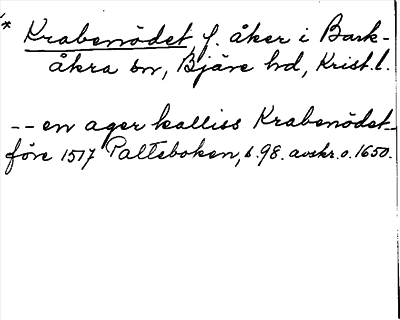 * Krabenödet, f. åker i Bark-
åkra sn, Bjäre hd, Krist. l.
-- en ager kalliss Krabenödet -
före 1517 Palteboken, s. 98. avskr. o. 1650.